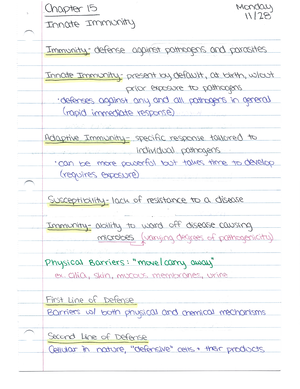 Chapter 15
Monday
11/28
Innate Immunity
Immunity- defense against pathogens and parasites
Innate Immunity- present by default, at birth, w/out
prior exposure to pathogens
·defenses against any and all pathogens in general
(rapid immediate response)
Adaptive Immunity- specific response tailored to
individual pathogens
·can be more powerful but takes time to develop
(requires exposure)
Susceptibility- lack of resistance to a disease
Immunity- ability to ward off disease causing
microbes (varying degrees of pathogenicity)
Physical Barriers: "move/carry away"
ex. cilia, skin, mucous membranes, urine
First Line of Defense
Barriers w/ both physical and chemical mechanisms
Second Line of Defense
Cellular in nature, "defensive" cells + their products